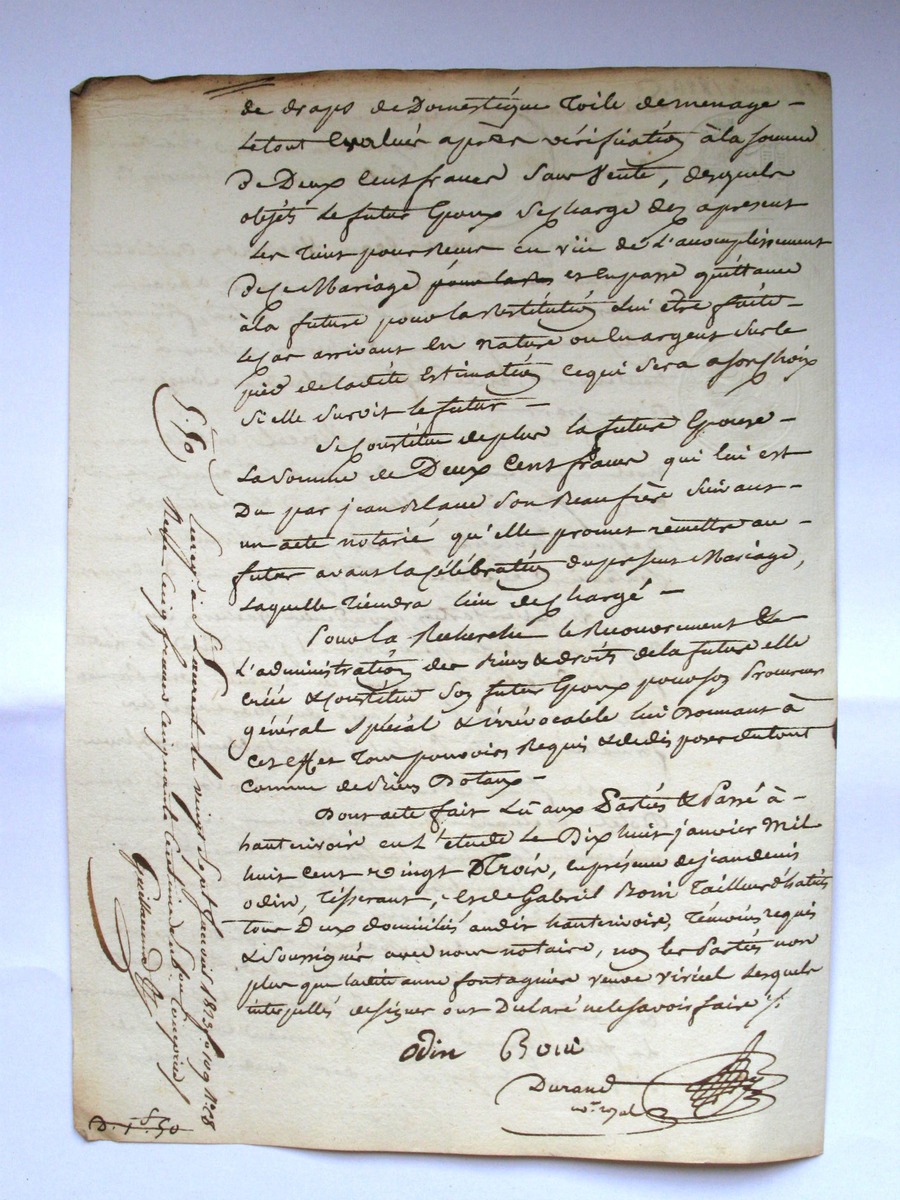 de draps de Domestique Toile de menage –
le tout Evalué après vérification à la somme
De Deux Cent francs Sans Vente, desquels
objets le futur Epoux se charge dez apresent
Les Tient pour Recus en vüe de L'acomplissement
De ce Mariage et En passe quittance
à la future pour la Restitution lui être faite –
le cas arrivant En nature ou En argent sur le
pied de ladite Estimation ce qui sera a son choix
si elle survit le futur –
Se Constitue de plus la future Epouse –
La somme de Deux Cent francs qui lui est
Du par jean Blanc son Beaufrère suivant –
un acte notarié qu'elle promet remettre au –
futur avant la Célébration du présent Mariage,
Laquelle Tiendra lieu de Chargé –
Pour la Recherche le Recouvrement &
L'administration des Biens & droits de la future elle
créée & Constitue son futur Epoux pour son Procureur
général spécial & irrévocable lui Donnant à
cet effet Tout pouvoirs Requis & de disposer du tout
comme de Biens Dotaux –
Dont acte fait Lu aux Parties & Passé à –
hauterivoire en L'étude le Dix huit janvier Mil
huit cent vingt Trois, En présence de jean denis
odin, Tisserant, & de Gabriel Tailleur d'habits
Tous Deux domiciliés audit hauterivoire, Témoins requis
& Soussignés avec nous notaire, non les Parties non
plus que ladite anne fontagnier veuve viricel lesquels
interpellés de signer ont Declaré ne le savoir faire
odin
Durand
no.re royal
5. 50
Enreg.é à S Laurent le vingt sept Janvier 1823 fo 109 No. C8
Reçu Cinq francs Cinquante Centimes Sub.on Comprise
Guillaume
D. 1 f. 50